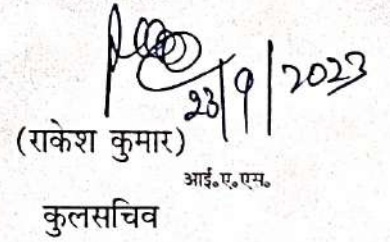 23/9/2023
(राकेश कुमार)
आई॰ए॰एस॰
कुलसचिव